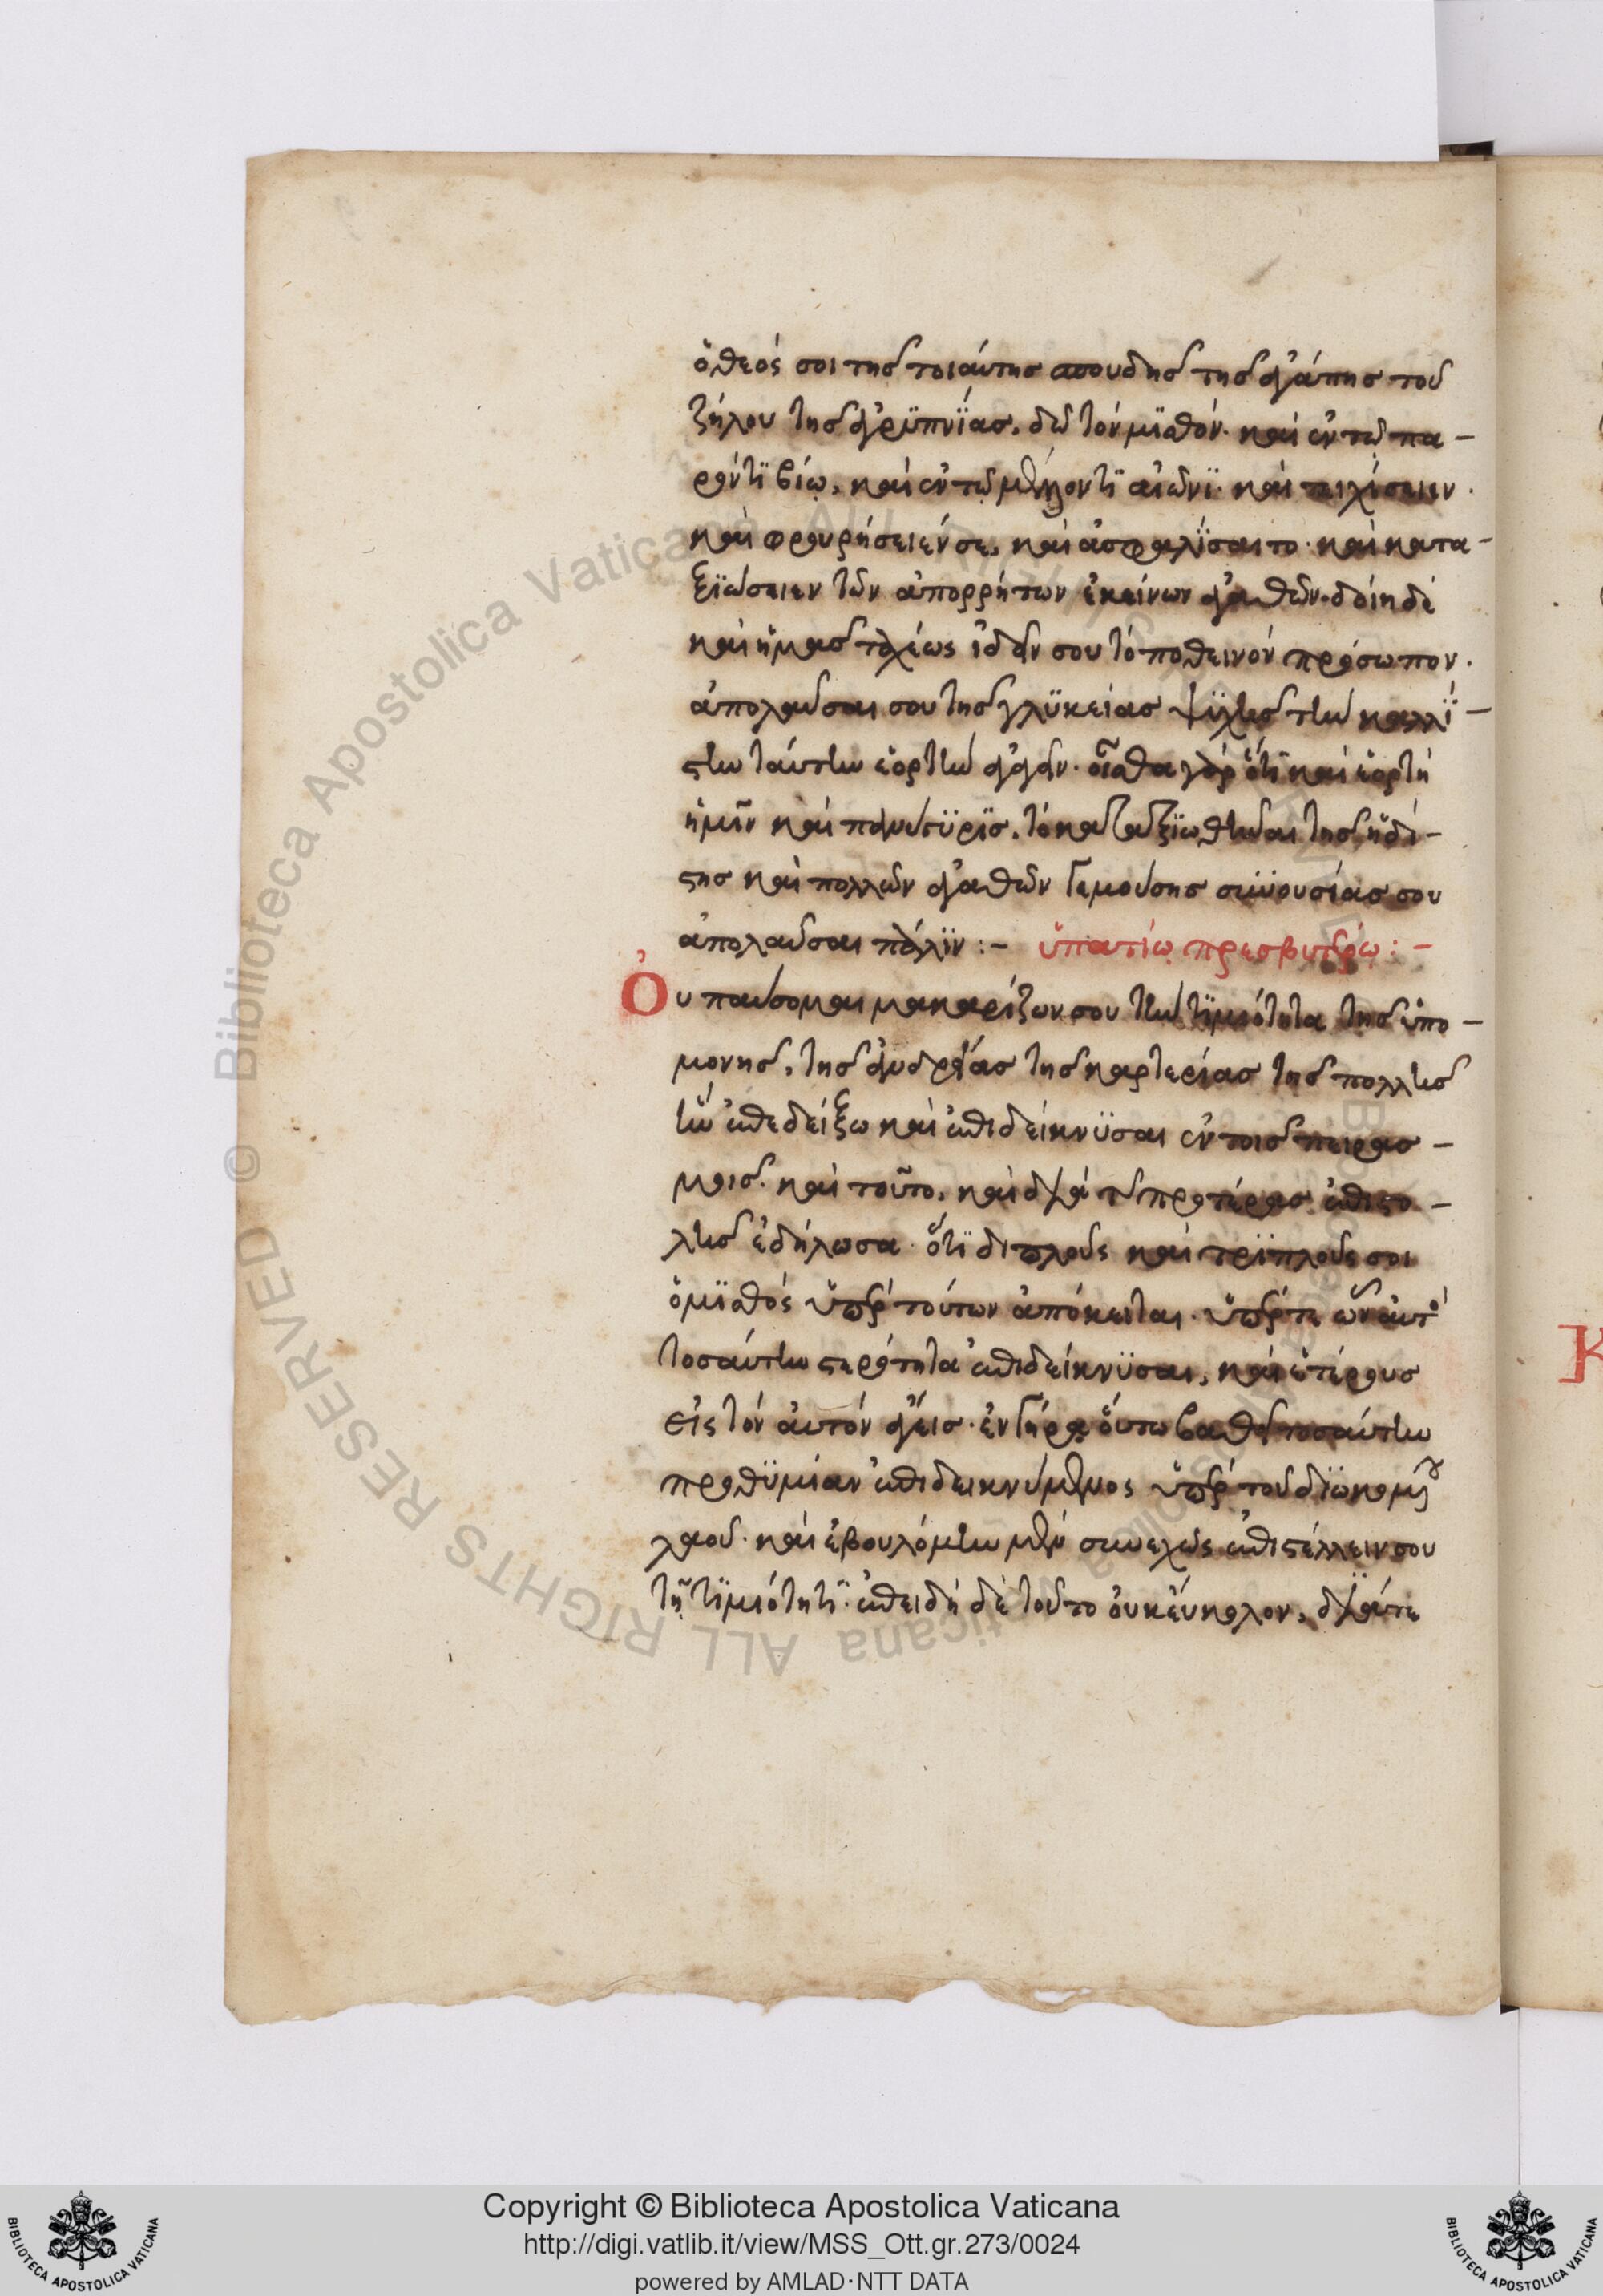 ὁ θεός σοι της τοιάυτης σπουδης της ἀγάπης του
ζήλου της ἀγρϋπνΐας, δῶ τόν μϊσθόν· και ἐν τῶ πα-
ρόντϊ βίω, και ἐν τῶ μέλλοντϊ αἰῶνϊ· και τειχίσειεν·
και φρουρήσειέν σε, και ἀσφαλϊσαιτο· και κατα-
ξϊώσειεν τῶν ἀπορρήτων ἐκείνων ἀγαθῶν· δόιη δέ
και ἡμας ταχέως ἰδειν σου τό ποθεινόν πρόσωπον·
ἀπολαυσαι σου της γλϋκείας ψϋχης την καλλΐ-
στην ταύτην ἑορτην ἄγειν· οἶσθα γάρ ὅτϊ και ἑορτή
ἡμῖν και πανήγϋρϊς, τό καταξϊωθηναι της ἡδί-
στης και πολλῶν ἀγαθῶν γεμούσης συνουσίας σου
ἀπολαυσαι πάλϊν :- ὑπατίω πρεσβυτέρω :-
Ὀυ παυσομαι μακαρίζων σου την τϊμιότητα της ὑπο-
μονης, της ἀνδρείας της καρτερίας της πολλης
ἥν ἐπεδείξω και ἐπιδείκνϋσαι ἐν τοις πειρασ-
μοις· και τοῦτο, και διά της προτέρας ἐπιστο-
λης ἐδήλωσα· ὅτϊ διπλους και τρϊπλους σοι
ὁ μϊσθός ὑπέρ τούτων ἀπόκειται· ὑπέρ τε ὧν ἀυτός
τοσάυτην στερότητα ἐπιδείκνϋσαι, και ἑτέρους
εἰς τόν ἀυτόν ἄγεις· ἐν γήρα ὅυτω βαθει τοσάυτην
προθϋμίαν ἐπιδεικνύμενος ὑπέρ του δϊωκομένου
λαου· και ἐβουλόμην μέν συνεχῶς ἐπιστέλλειν σου
τῆ τϊμιότητϊ· ἐπειδή δέ τουτο ὀυκ ἔυκολον, διά τε